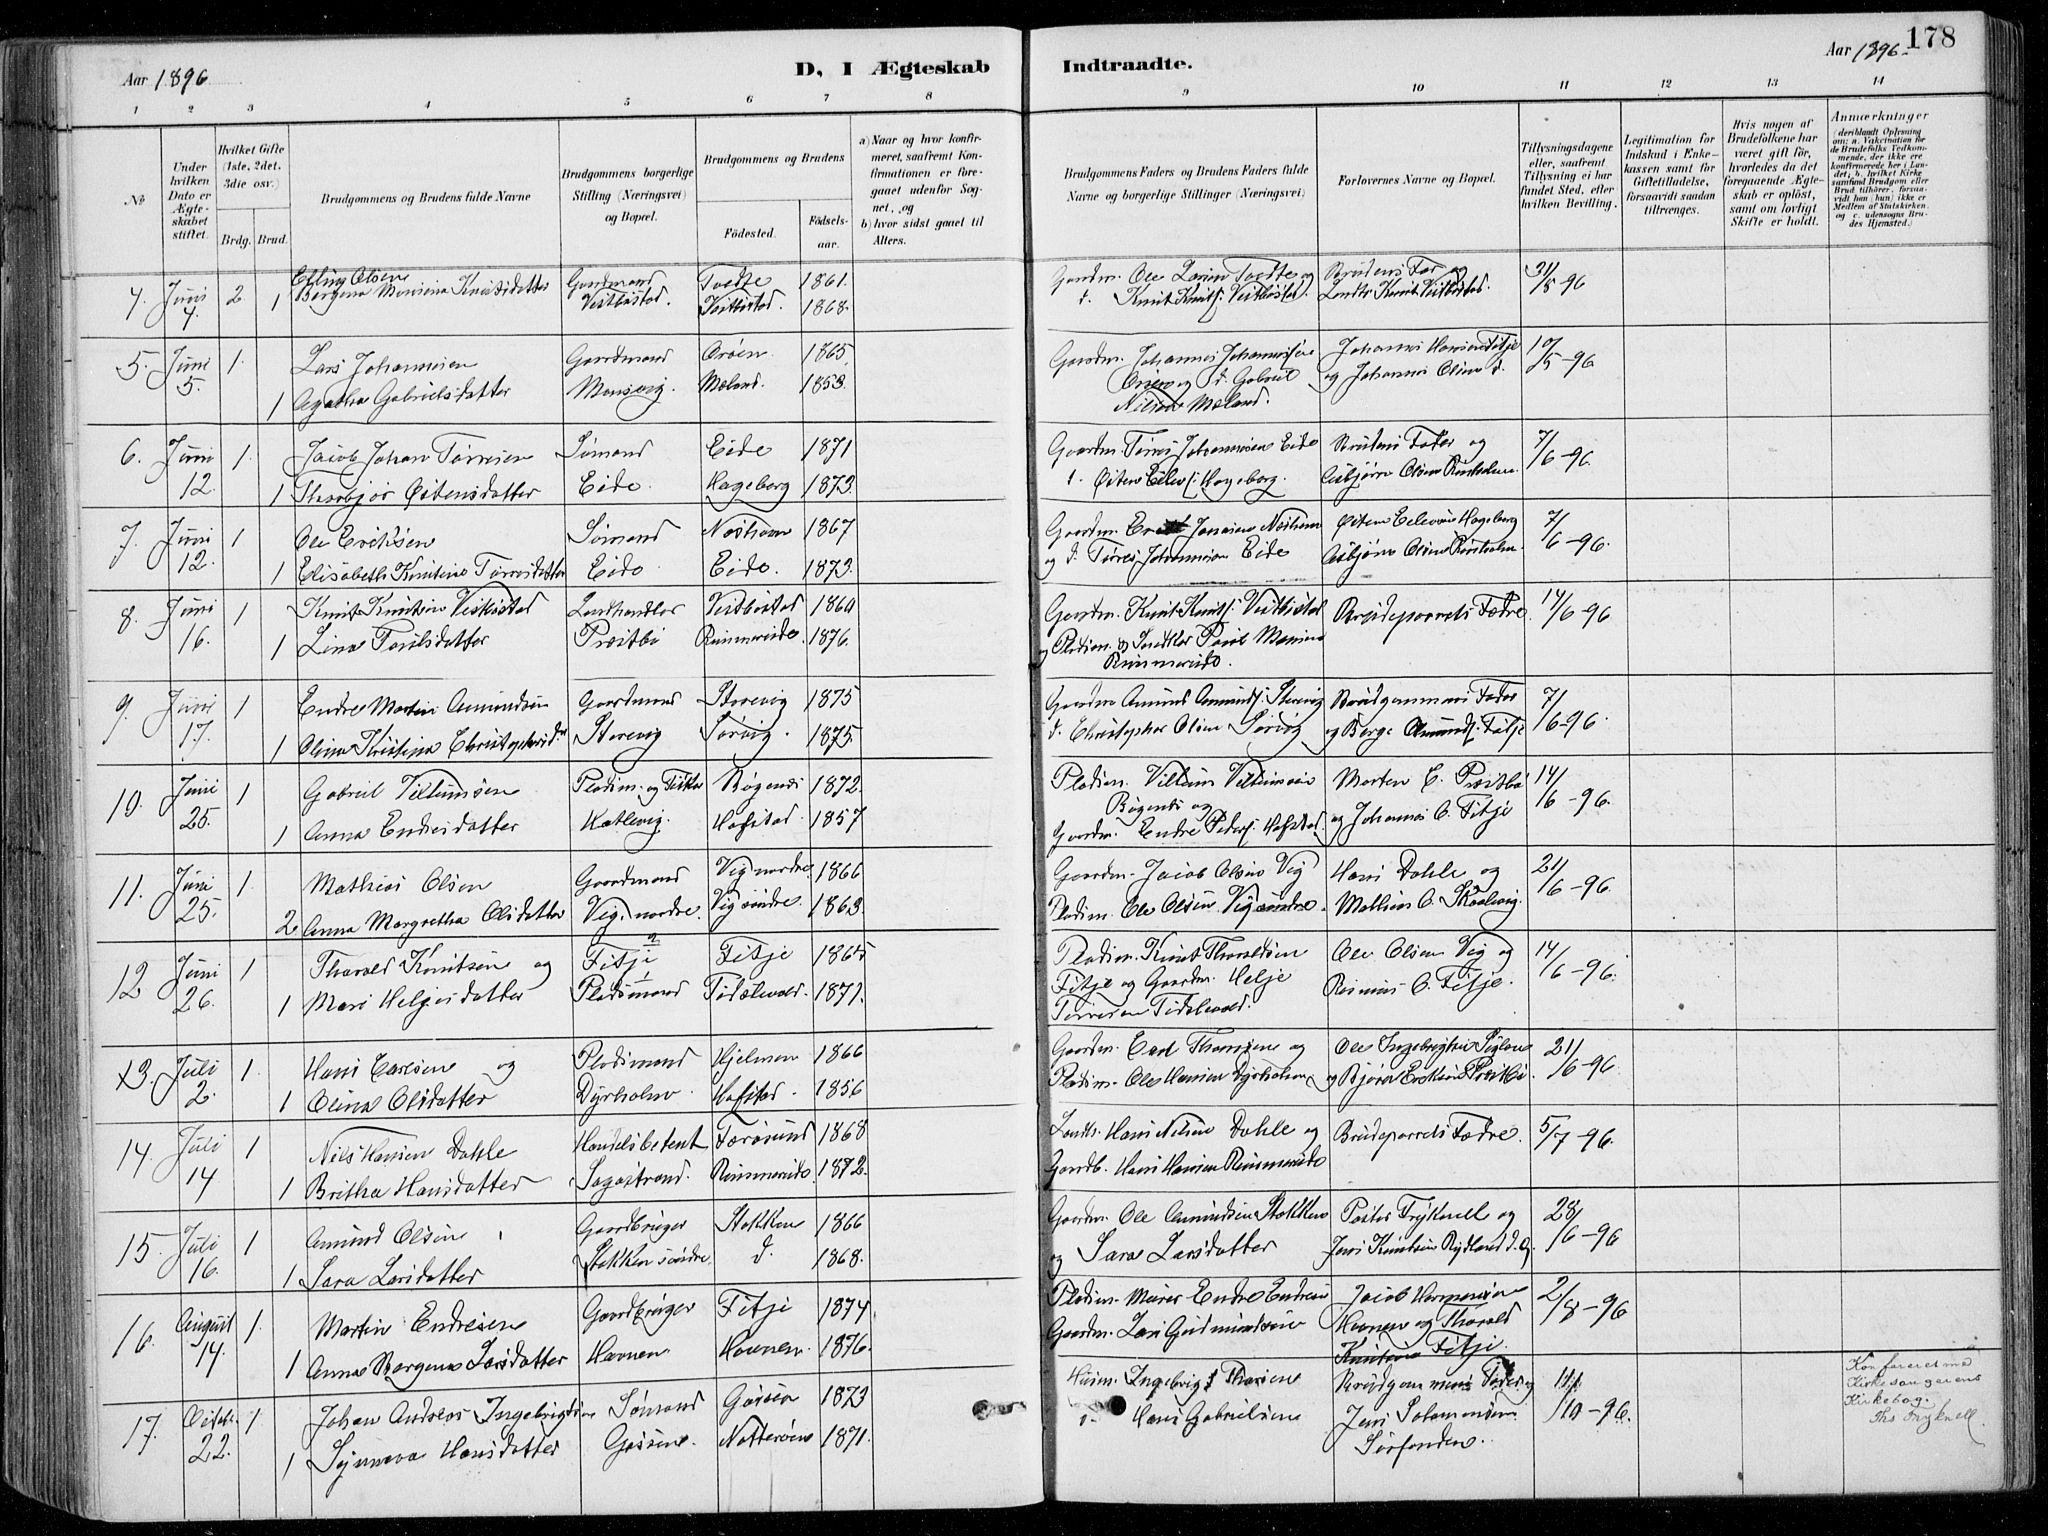 Aar 1896
D, I Ægteskab
Indtraadte.
Aar 1896
178
1 2 3 4 5 6 7 8 9 10 11 12 13 14
No
Under hvilken Dato er Ægteskabet stiftet.
Hvilket Gifte (1ste, 2det, 3die osv.)
Brdg. Brud.
Brudgommens og Brudens fulde Navne
Brudgommens borgerlige Stilling (Næringsvei) og Bopæl.
Brudgommens og Brudens
Fødested. Fødselsaar.
a) Naar og hvor konfirmeret, saafremt Konfirmationen er foregaaet udenfor Sognet, og
b) hvor sidst gaaet til Alters.
Brudgommens Faders og Brudens Faders fulde Navne og borgerlige Stillinger (Næringsvei)
Forlovernes Navne og Bopæl.
Tillysningsdagene eller, saafremt Tillysning ei har fundet Sted, efter hvilken Bevilling.
Legitimation for Indskud i Enkekassen samt for Giftetilladelse, forsaavidt saadan tiltrænges.
Hvis nogen af Brudefolkene har været gift før, hvorledes da det foregaaende Ægteskab er opløst, samt om lovligt Skifte er holdt.
Anmærkninger
(deriblandt Oplysning om: a. Vakcination for de Brudefolks Vedkommende, der ikke ere konfirmerede her i Landet; b. hvilket Kirkesamfund Brudgom eller Brud tilhører, forsaavidt han (hun) ikke er Medlem af Statskirken, og c. udensogns Brudes Hjemsted.)
4. Juni 2 Erling Olsen Gaardmand Tvedte 1861. Gaardm. Ole Larsen Tvedte og Brudens Far og 31/
4. 1 Bergena Knutsdatter Vestbøstad. Vestbøstad. 1868. d. Knut Knuts. Vestbøstad. Landh. Knut Vestbøstad. /5 96
5. Juni 1. Lars Johannesen Gaardmand 1865 Gaardm. Johannes Johannesen Johannes Hansen Fitje
5. 1 Agatha Gabrielsdatter Mæland. 1853. og d. Gabriel og Johannes Olsen d. /5-96
Nilsen Mæland.
6. Juni 1. Jacob Johan Tørresen Sømand Eide 1871 Gaardm. Tørres Johannesen Eide Brudens Fader og 7/
12. 1 Thorbjør Østensdatter Eide. Hageberg 1873. Østen Hageberg. Asbjørn Olsen /6-96.
7. Juni 1 Ole Eriksen Sømand 1867 Gaardm. Østen Hageberg 7/
12. 1 Elisabeth Knutine Tørresdatter Eide. Eide. 1873. og d. Tørres Johannesen Eide Asbjørn Olsen /6-96.
8. Juni 1 Knut Knutsen Vestbøstad Landhandler Vestbøstad 1860 Gaardm. Knut Knuts. Vestbøstad Brudeparrets Fædre. 14/
16. 1 Lina Poulsdatter Præstbø Rimmereide. 1876. og Pladsm. og Poul Monsen /6-96
Rimmereide.
9. Juni 1 Endre Martin Amundsen Gaardmand Storevig 1875 Gaardm. Amund Amunds. Storevig Brudgommens Fader 7/
17. 1 Olina Kristina Storevig Sørvig. 1875. d. Christopher Olsen Sørvig og Berge Amunds. Fitje /6-96.
10. Juni 1 Gabriel Villumsen Pladsm. og Fisker Bøgenes 1872. Pladsm. Villum Villumsen Morten E. Præstbø 14/
25. 1 Anna Endresdatter Hofstad. 1857 Bøgenes og og Johannes O. Fitje /6-96.
Gaardm. Endre Peders. Hofstad.
11. Juni 1. Mathias Olsen Gaardmand Vig nordre. 1866 Gaardm. Jacob Olsen Vig Hans Dahle og 21/
25. 2 Anna Margretha Olsdatter Vig. nordre. Vig søndre. 1863. Pladsm. Ole Olsen Vig søndre. Mathias O. Skaalvig. /6-96.
12 Juni 1 Thorald Knutsen og Fitje Fitje 1865 Pladsm. Knut Thoraldsen Ole Olsen Vig og 14/
26. 1 Mari Helgesdatter Pladsmand 1871. Fitje og Gaardm. Helje Rasmus O. Fitje. /6-96.
Tørresen
13. Juli 1. Hans Carlsen og Pladsmand Hjelmen 1866 Gaardm. Carl Thomsen og Ole Ingebrigtsen 21/
2. 1 Olina Olsdatter Dyrholm. Hofstad. 1856 Pladsm. Ole Hansen Dyrholm og Bjørn Eriksen Præstbø. /6-96
14. Juli 1 Nils Hansen Dahle Handelsbetjent Færøsund 1868 Landh. Hans Nilsen Dahle og Brudeparrets Fædre. 5/7-96.
14 1 Britha Hansdatter Sagastrand. Rimmereide 1872. Gaardb. Hans Hansen Rimmereide
15. Juli 1 Amund Olsen Gaardbruger Stokken 1866 Gaardm. Ole Amundsen Stokken Peter Tryknell og 28/
16. 1 Sara Larsdatter Stokken søndre. d. 1868. og Sara Larsdatter Jens Knutsen Rydland d. g. /6-96
16. August 1. Martin Endresen Gaardbruger Fitje 1874. Pladsm. Murer Endre Endresen Jacob Hermansen 2/
14. 1 Anna Bergena Larsdatter Havnen Havnen. 1876. Gaardm. Lars Gudmundsen Havnen og Thorald /8-96
Knutsen Fitje.
17. 1. Johan Andreas Ingebrigtsen Sømand Gåsøen 1873 Husm. Ingebrigt Brudgommens Fader og 11/
22. 1 Synneva Hansdatter Gåsøen. 1871. Hans Gabrielsen Jens Salamonsen /10-96.
Konfereret med
Kirkesangerens
Kirkebog.
Ths Tryknell.